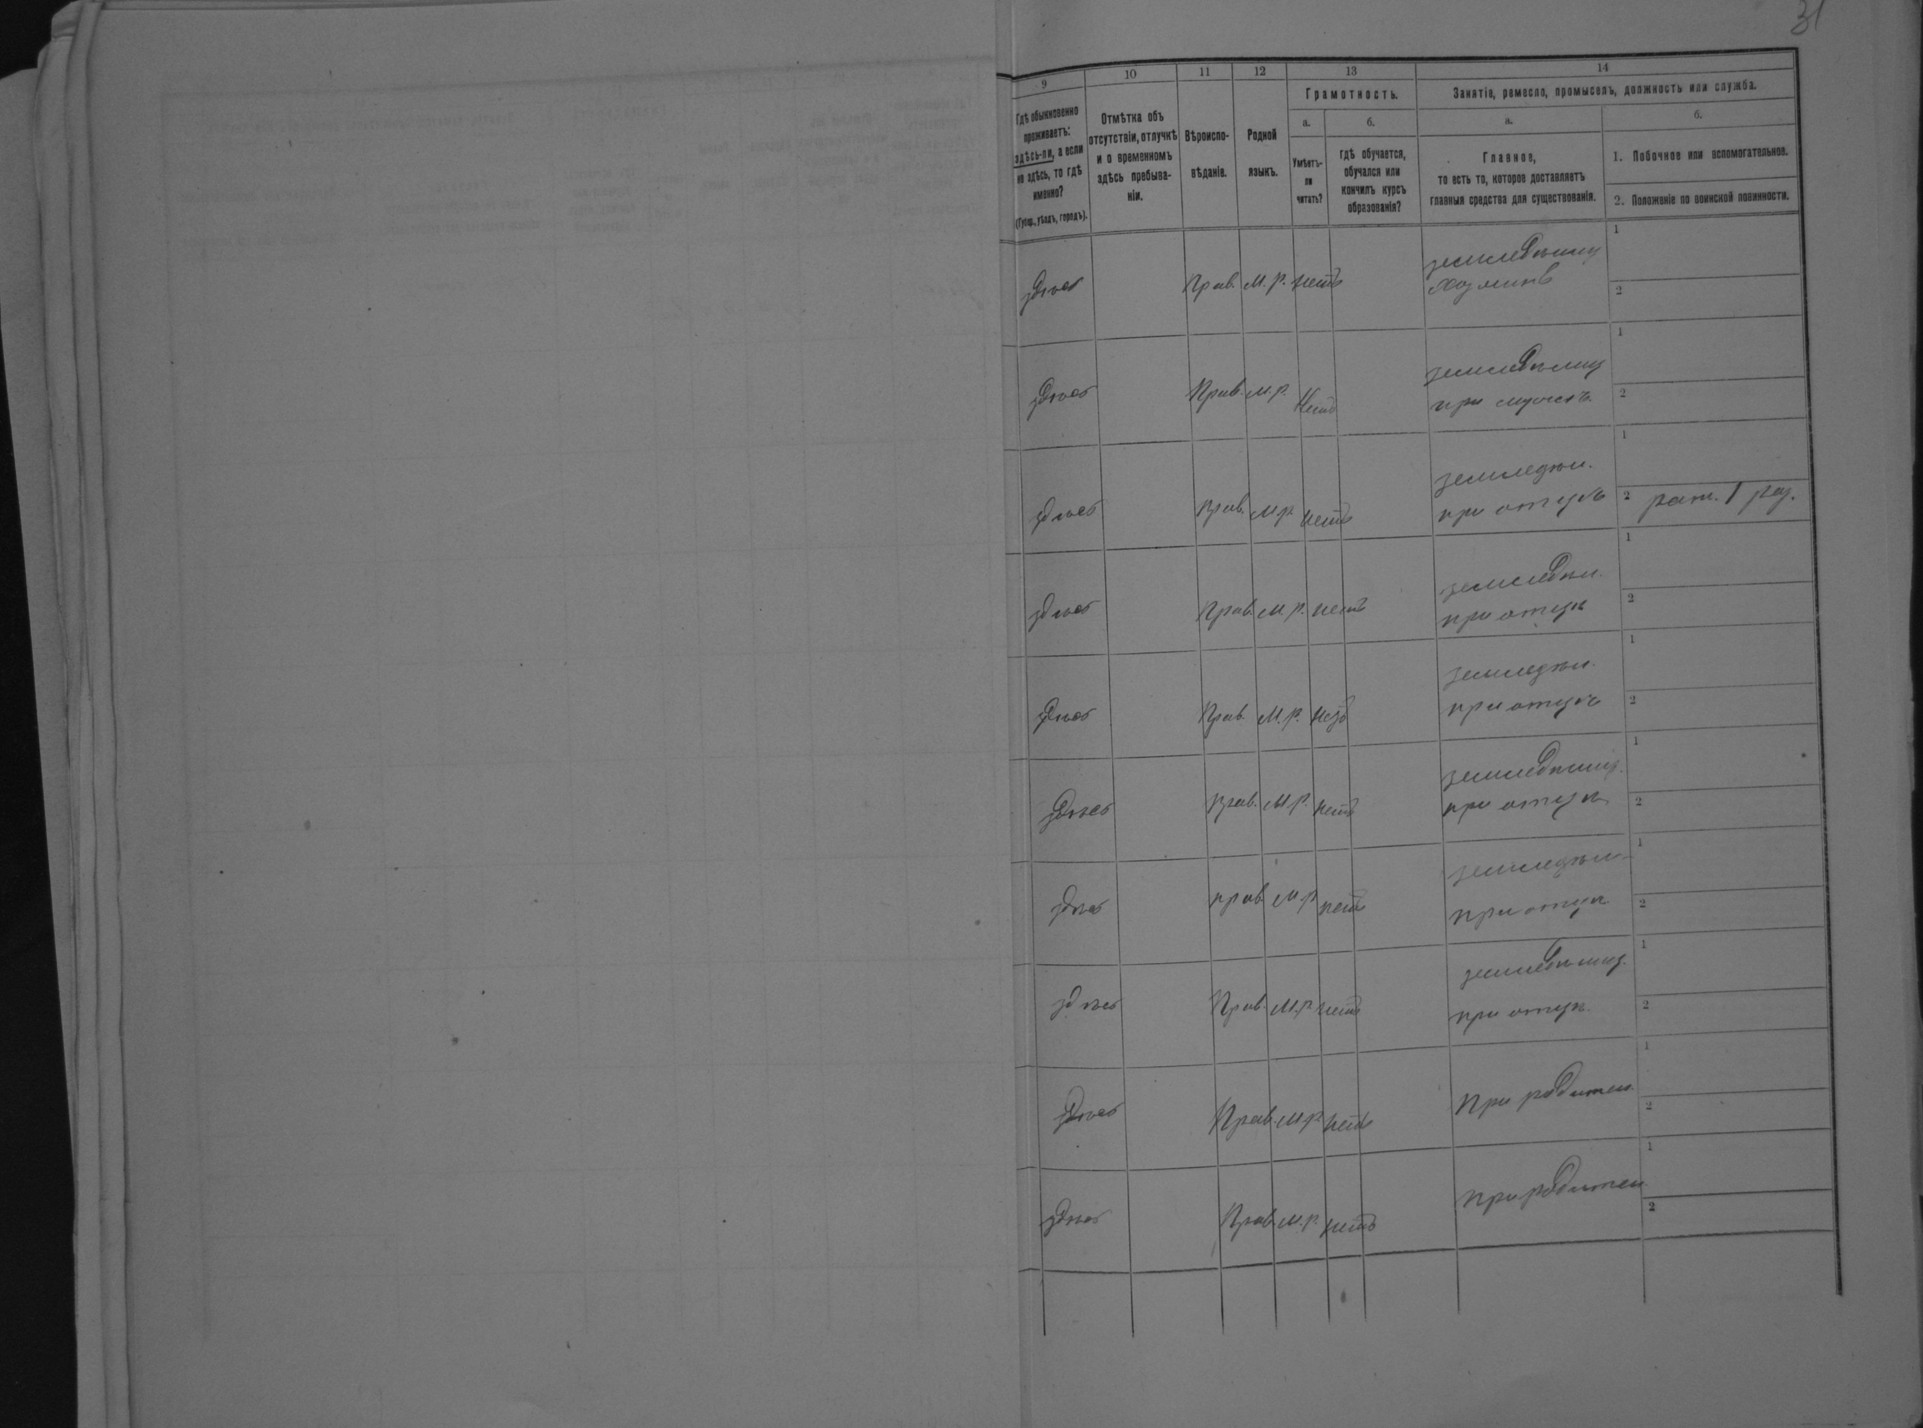 31
9 10 11 12 13 14
Гдѣ обыкновенно
проживаетъ:
здѣсь-ли, а если
не здѣсь, то гдѣ
именно?
(Губер., уѣздъ, городъ).
Отмѣтка объ
отсутствіи, отлучкѣ
и о временномъ
здѣсь пребыва-
ніи.
Вѣроиспо-
вѣданіе.
Родной
языкъ.
Грамотность.
а. б.
Умѣетъ-
ли
читать?
гдѣ обучается,
обучался или
кончилъ курсъ
образованія?
Занятіе, ремесло, промыселъ, должность или служба.
а. б.
Главное,
то есть то, которое доставляетъ
главныя средства для существованія.
1. Побочное или вспомогательное.
2. Положеніе по воинской повинности.
здѣсь Прав. М. р. нетъ земледѣлец хозяинъ 1 2
здѣсь Прав. М. р. Нетъ земледѣлец при мужѣ 1 2
здѣсь Прав. М. р. нетъ земледѣл. при отцѣ 1 2 рат. 1 раз.
здѣсь Прав. М. р. нетъ земледѣл. при отцѣ 1 2
здѣсь Прав. М. р. нетъ земледѣл. при отцѣ 1 2
здѣсь прав. М. р. нетъ земледѣлец. при отцѣ 1 2
здѣсь прав. М. р нетъ земледѣл. при отцѣ 1 2
здѣсь Прав. М. р нетъ земледѣлец. при отцѣ 1 2
здѣсь Прав. М. р нетъ При родител. 1 2
здѣсь Прав. М. р. нетъ При родител. 1 2